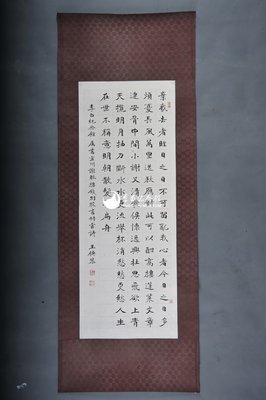 棄我去者昨日之日不可留亂我心者今日之日多
煩憂長風萬里送秋雁對此可以酣高樓蓬萊文章
建安骨中間小謝又清發俱懷逸興壯思飛欲上青
天攬明月抽刀斷水水更流舉杯消愁愁更愁人生
在世不稱意明朝散髮弄扁舟
李白紀念館屬書宣州謝朓樓餞別校書叔雲詩 王